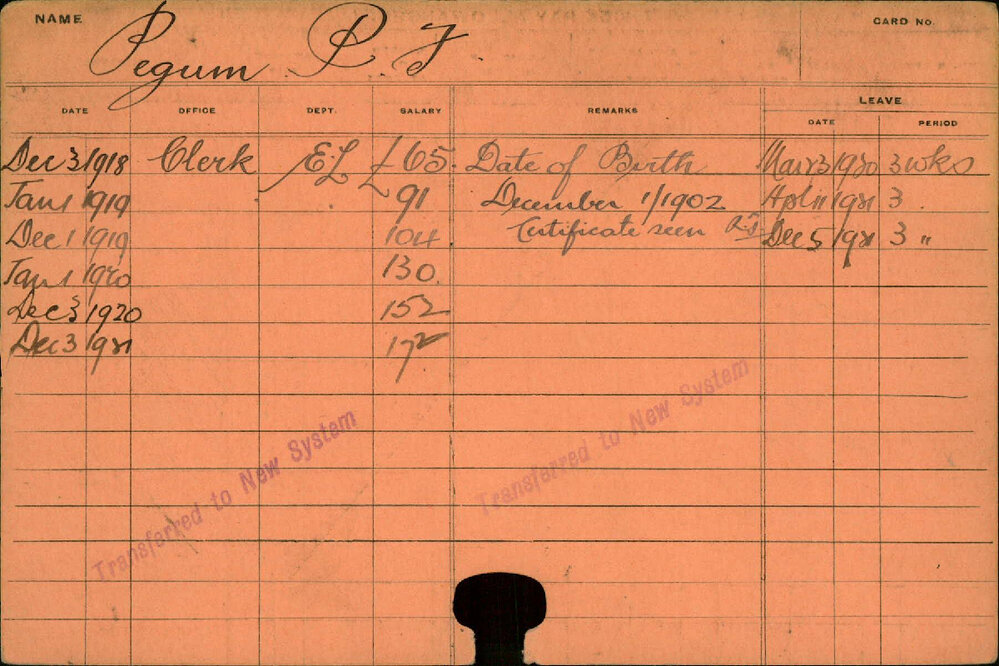 NAME Pegum P J CARD No.
DATE OFFICE DEPT. SALARY REMARKS LEAVE
DATE PERIOD
Dec 3 1918 Clerk EL £65. Date of Birth Mar 3 1920 3 wks
Jan 1 1919 £91 December 1/1902 April 11 1921 3
Dec 1 1919 104 Certificate seen Dec 5 1921 3 "
Jan 1 1920 130
Dec 3 1920 152
Dec 3 1921 172
Transferred to New System
Transferred to New System